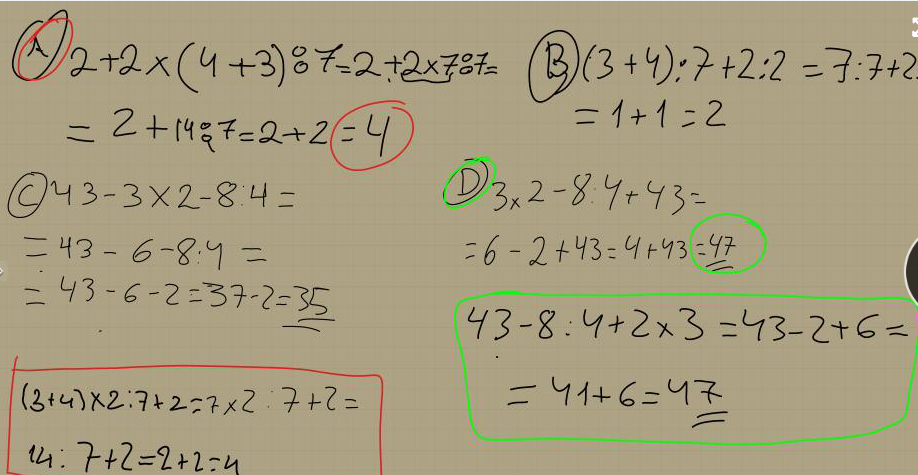 A 2+2×(4+3):7=2+2×7:7=
= 2+14:7=2+2=4
B (3+4):7+2:2 = 7:7+2
= 1+1 = 2
C 43-3×2-8:4 =
= 43-6-8:4 =
= 43-6-2=37-2=35
D 3×2-8:4+43=
=6-2+43=4+43=47
43-8:4+2×3=43-2+6=
= 41+6=47
(3+4)×2:7+2=7×2:7+2=
14:7+2=2+2=4